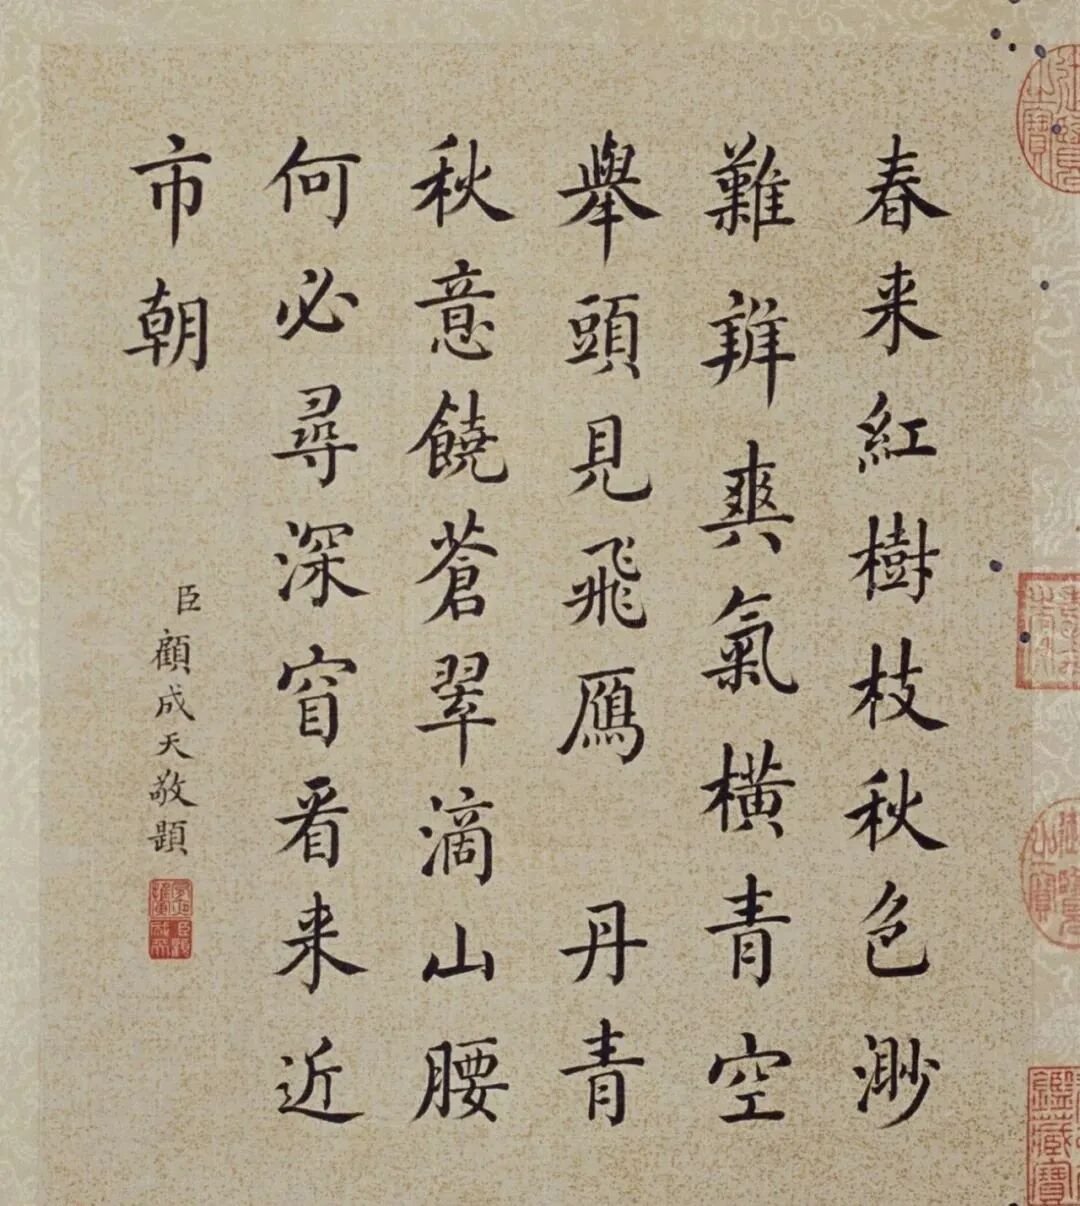 春来紅樹枝秋色渺
難辨爽氣橫青空
舉頭見飛鴈 丹青
秋意饒蒼翠滴山腰
何必尋深窅看来近
市朝
臣顧成天敬題